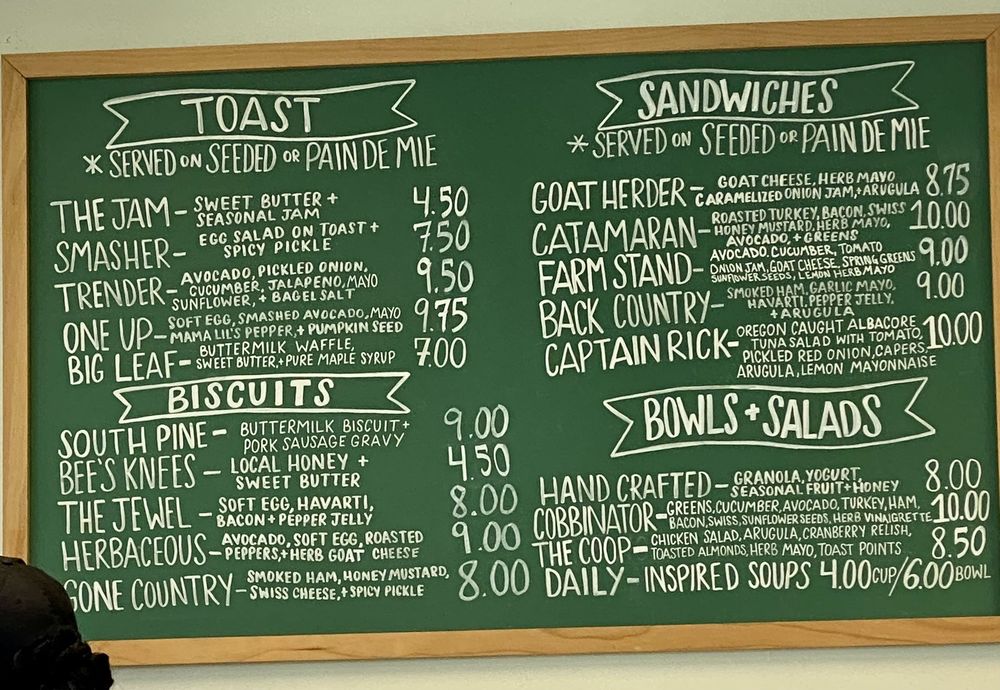 TOAST
* SERVED ON SEEDED OR PAIN DE MIE
THE JAM - SWEET BUTTER + 4.50
SEASONAL JAM
SMASHER - EGG SALAD ON TOAST + 7.50
SPICY PICKLE
TRENDER - AVOCADO, PICKLED ONION, 9.50
CUCUMBER, JALAPENO, MAYO
SUNFLOWER, + BAGEL SALT
ONE UP - SOFT EGG, SMASHED AVOCADO, MAYO 9.75
MAMA LIL'S PEPPER, + PUMPKIN SEED
BIG LEAF - BUTTERMILK WAFFLE, 7.00
SWEET BUTTER, + PURE MAPLE SYRUP
BISCUITS
SOUTH PINE - BUTTERMILK BISCUIT + 9.00
PORK SAUSAGE GRAVY
BEE'S KNEES - LOCAL HONEY + 4.50
SWEET BUTTER
THE JEWEL - SOFT EGG, HAVARTI, 8.00
BACON + PEPPER JELLY
HERBACEOUS - AVOCADO, SOFT EGG, ROASTED 9.00
PEPPERS, + HERB GOAT CHEESE
GONE COUNTRY - SMOKED HAM, HONEY MUSTARD, 8.00
SWISS CHEESE, + SPICY PICKLE
SANDWICHES
* SERVED ON SEEDED OR PAIN DE MIE
GOAT HERDER - GOAT CHEESE, HERB MAYO 8.75
CARAMELIZED ONION JAM, + ARUGULA
CATAMARAN - ROASTED TURKEY, BACON, SWISS 10.00
HONEY MUSTARD, HERB MAYO,
AVOCADO, + GREENS
FARM STAND - AVOCADO, CUCUMBER, TOMATO 9.00
ONION JAM, GOAT CHEESE, SPRING GREENS
SUNFLOWER SEEDS, LEMON HERB MAYO
BACK COUNTRY - SMOKED HAM, GARLIC MAYO, 9.00
HAVARTI, PEPPER JELLY,
+ ARUGULA
CAPTAIN RICK - OREGON CAUGHT ALBACORE 10.00
TUNA SALAD WITH TOMATO,
PICKLED RED ONION, CAPERS
ARUGULA, LEMON MAYONNAISE
BOWLS + SALADS
HAND CRAFTED - GRANOLA, YOGURT, 8.00
SEASONAL FRUIT + HONEY
COBBINATOR - GREENS, CUCUMBER, AVOCADO, TURKEY, HAM, 10.00
BACON, SWISS, SUNFLOWER SEEDS, HERB VINAIGRETTE
THE COOP - CHICKEN SALAD, ARUGULA, CRANBERRY RELISH, 8.50
TOASTED ALMONDS, HERB MAYO, TOAST POINTS
DAILY - INSPIRED SOUPS 4.00 CUP / 6.00 BOWL